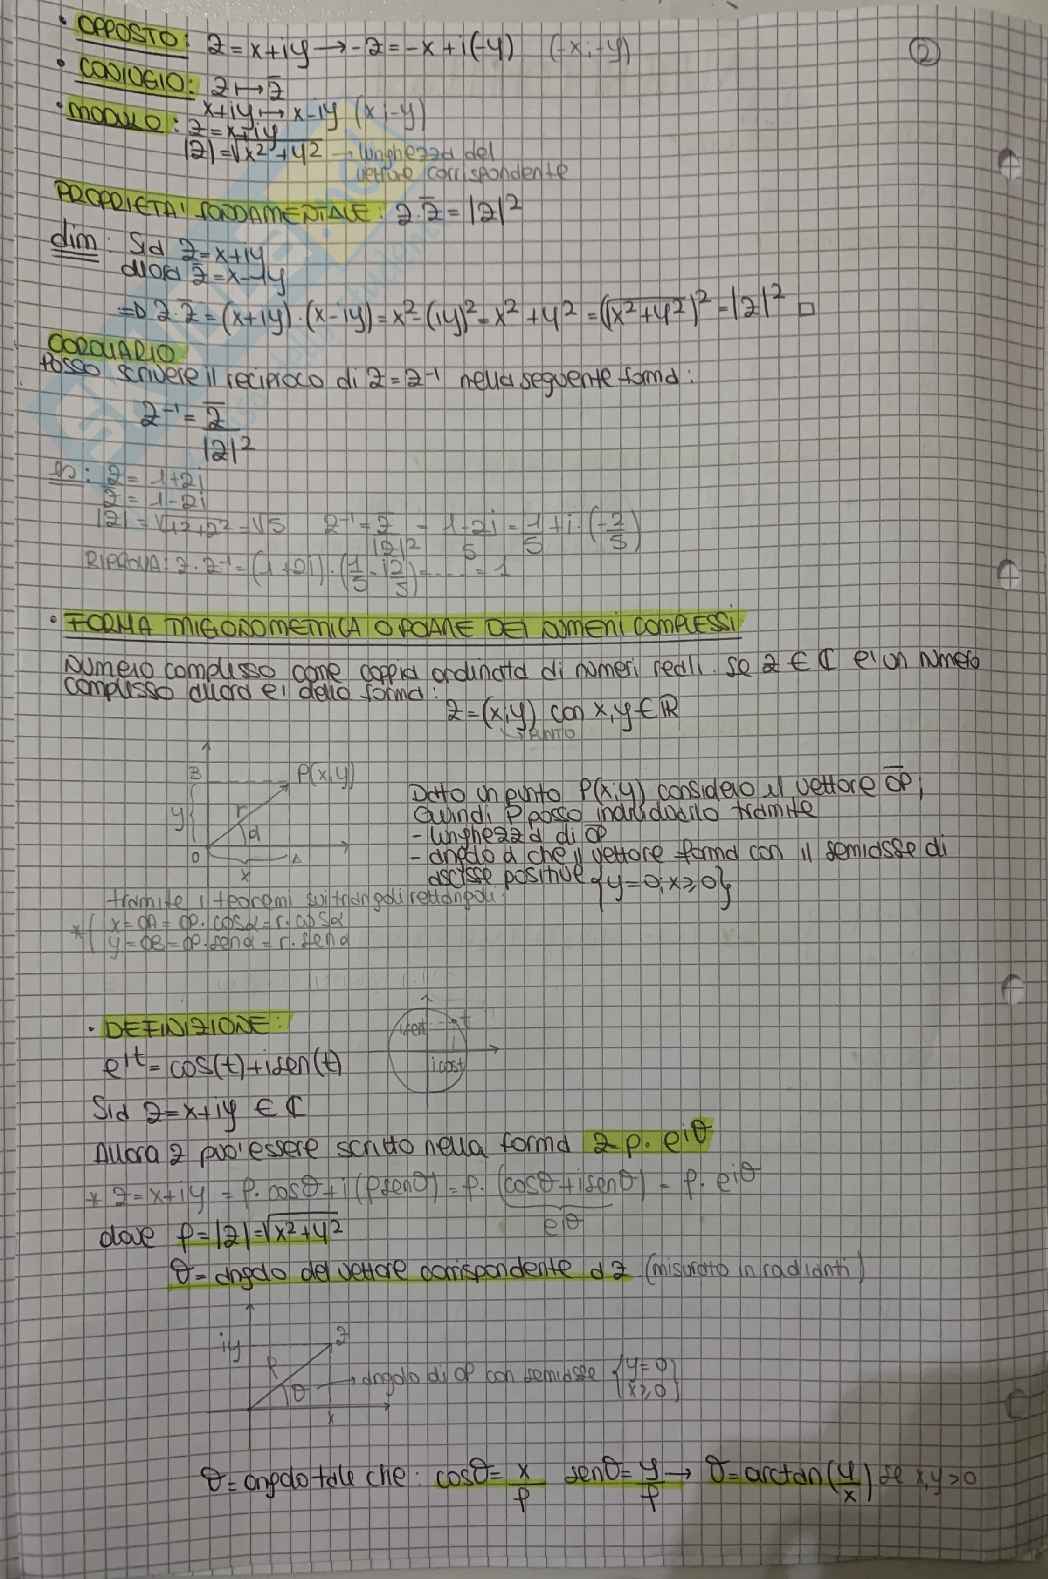 ②
• OPPOSTO: z = x+iy → -z = -x+i(-y) (-x;-y)
• CONIUGIO: z ↦ z̅
x+iy ↦ x-iy (x;-y)
• MODULO: z = x+iy
|z| = √x²+y² → lunghezza del
vettore corrispondente
PROPRIETA' FONDAMENTALE: z·z̅ = |z|²
dim: Sia z = x+iy
allora z̅ = x-iy
=D z·z̅ = (x+iy)·(x-iy) = x²-(iy)² = x²+y² = (√x²+y²)² = |z|² □
COROLLARIO
Posso scrivere il reciproco di z = z⁻¹ nella seguente forma:
z⁻¹ = z̅
|z|²
es: z = 1+2i
z̅ = 1-2i
|z| = √1²+2² = √5 z⁻¹ = z̅/|z|² = 1-2i/5 = 1/5 + i·(-2/5)
RIPROVA: z·z⁻¹ = (1+2i)·(1/5 - i2/5) = .... = 1
• FORMA TRIGONOMETRICA O POLARE DEI NUMERI COMPLESSI
Numero complesso come coppia ordinata di numeri reali. se z ∈ ℂ e' un numero
complesso allora e' della forma:
z = (x;y) con x,y ∈ ℝ
↳ PUNTO
B P(x,y)
y r α
O A
x
Dato un punto P(x;y) considero il vettore OP;
Quindi P posso individuarlo tramite
- lunghezza di OP
- angolo α che il vettore forma con il semiasse di
ascisse positive {y=0; x≥0}
tramite i teoremi sui triangoli rettangoli:
* { x = OA = OP·cosα = r·cosα
y = OB = OP·senα = r·senα
• DEFINIZIONE:
eⁱᵗ = cos(t)+isen(t)
isent t
icost
Sia z = x+iy ∈ ℂ
Allora z puo' essere scritto nella forma z ρ·e^iθ
* z = x+iy = ρ·cosθ+i(ρsenθ) = ρ·(cosθ+isenθ) = ρ·e^iθ
e^iθ
dove ρ = |z| = √x²+y²
θ = angolo del vettore corrispondente a z (misurato in radianti)
iy z
ρ
θ → angolo di OP con semiasse {y=0
x≥0}
x
θ = angolo tale che: cosθ = x/ρ senθ = y/ρ → θ = arctan(y/x) se x,y>0